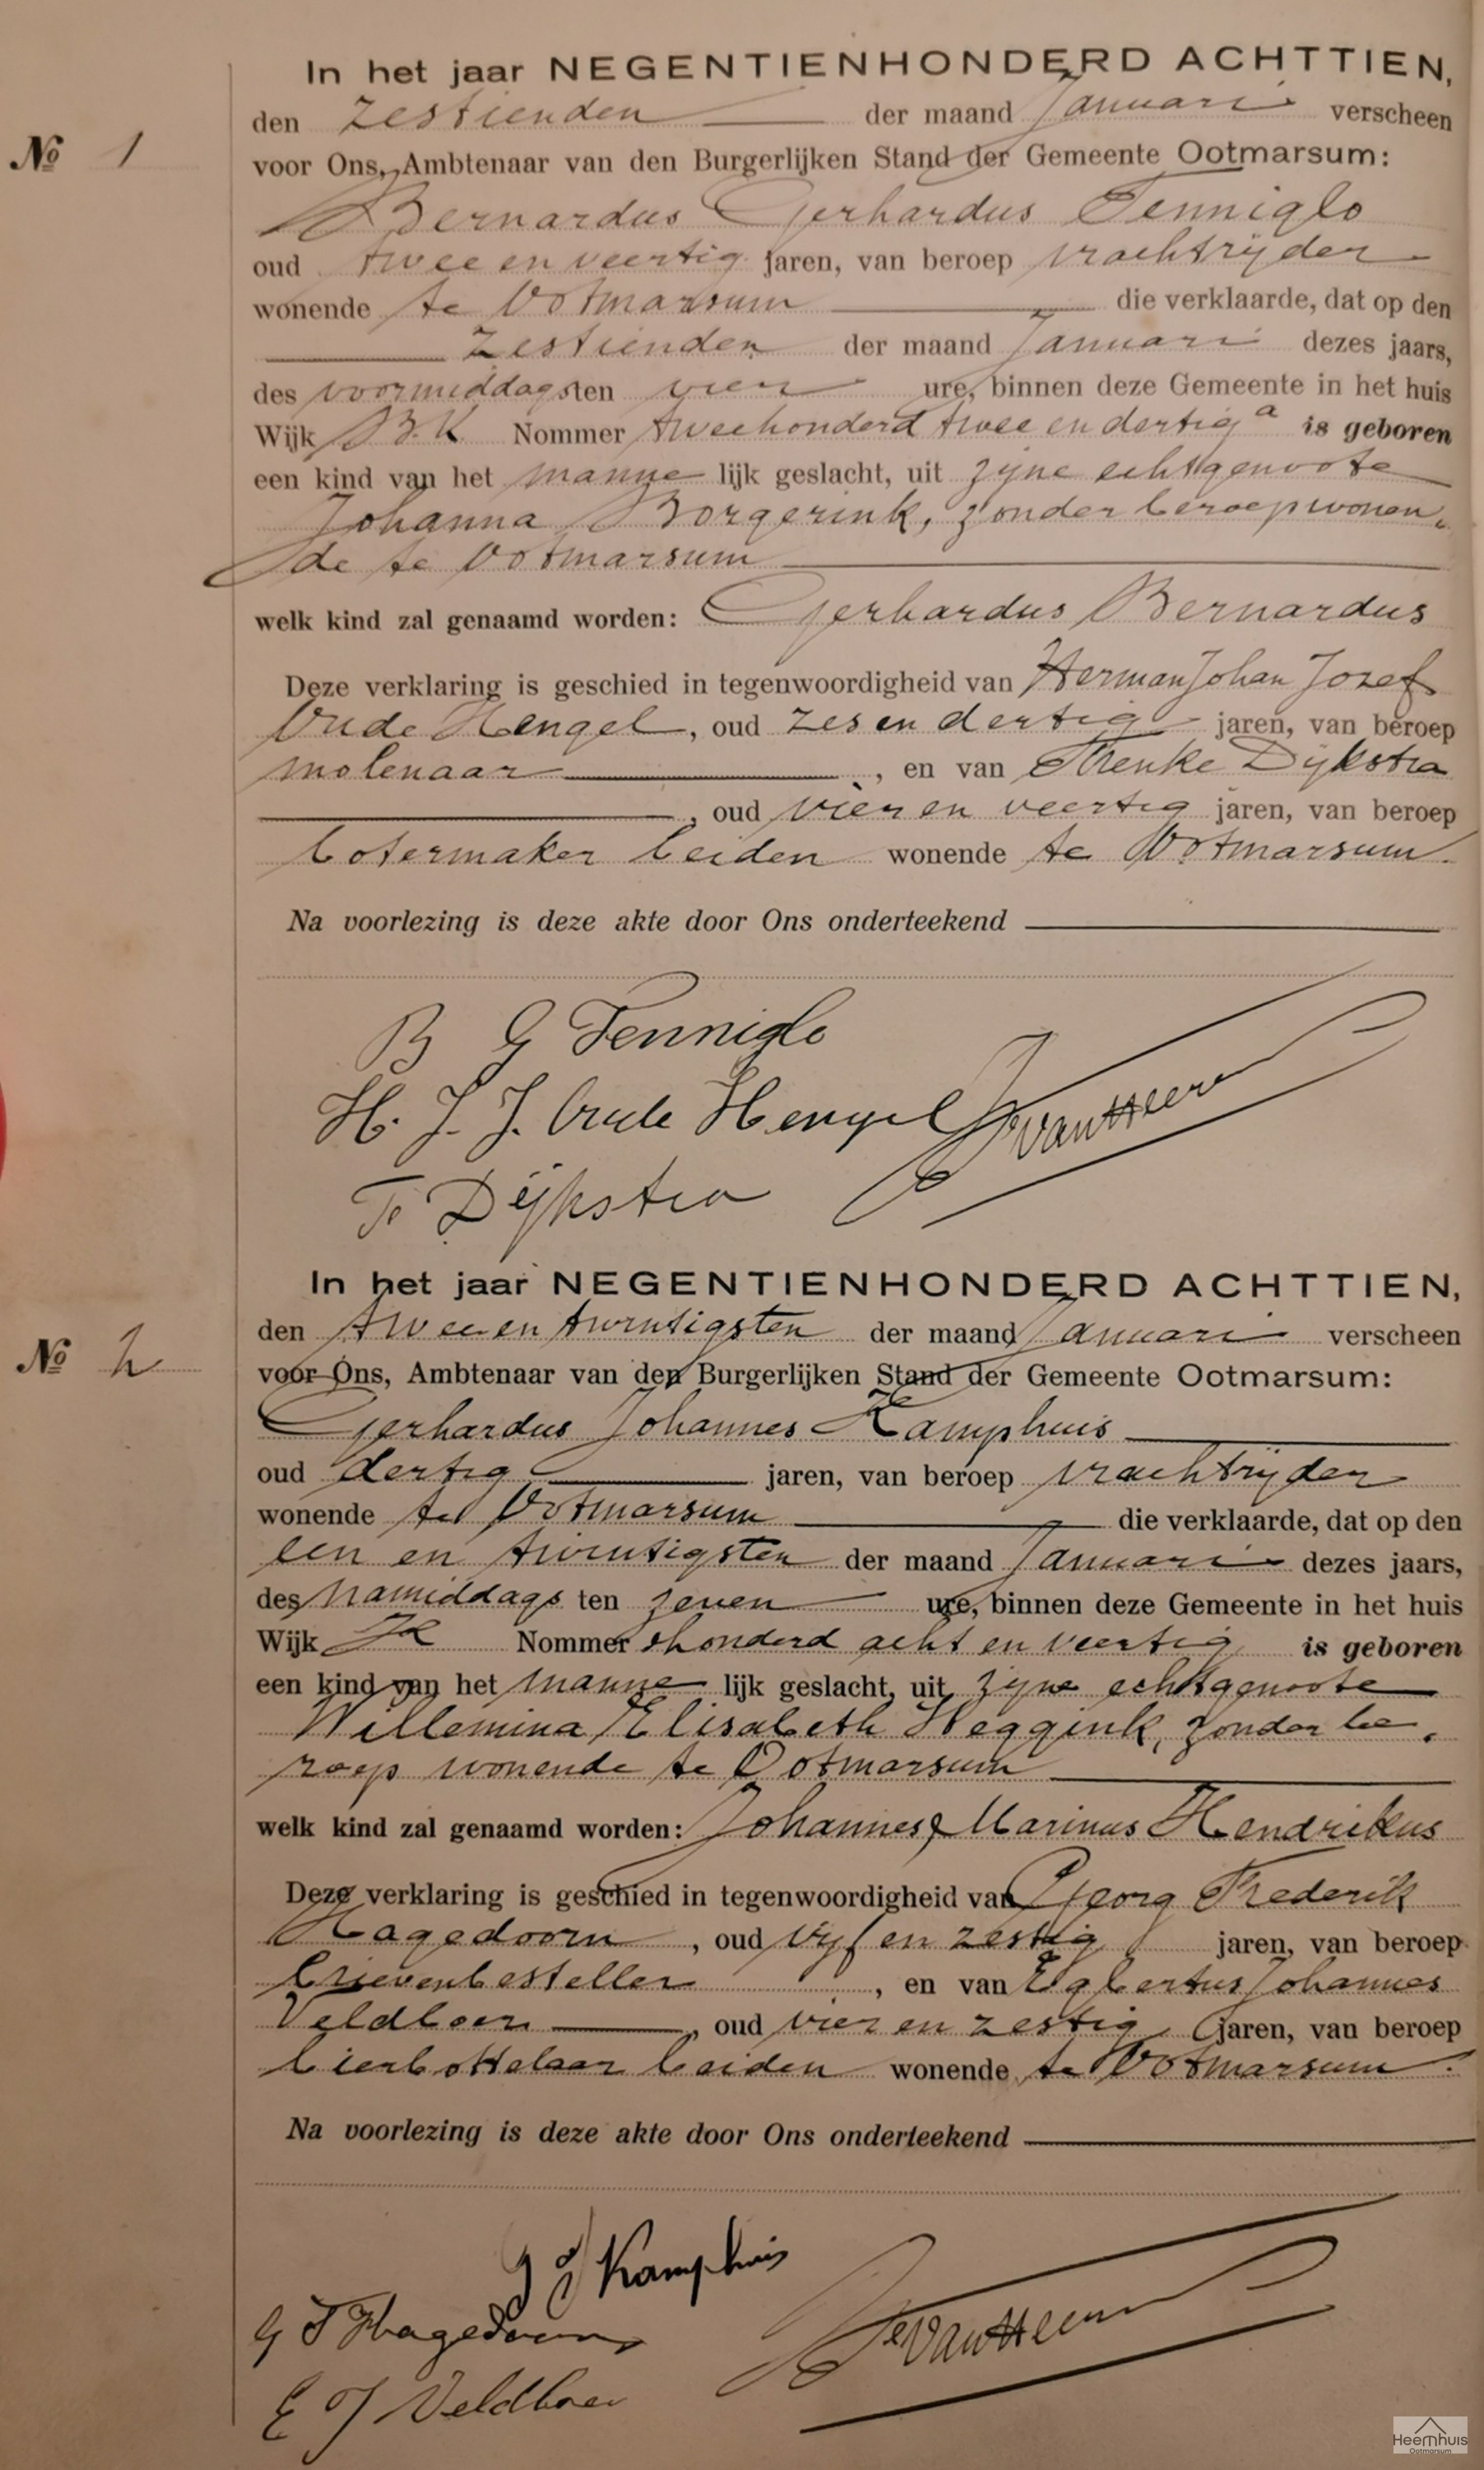 In het jaar NEGENTIENHONDERD ACHTTIEN,
den zestienden der maand Januari verscheen
No 1
voor Ons, Ambtenaar van den Burgerlijken Stand der Gemeente Ootmarsum:
Bernardus Gerhardus Tenniglo
oud twee en veertig jaren, van beroep vrachtrijder
wonende te Ootmarsum die verklaarde, dat op den
zestienden der maand Januari dezes jaars,
des voormiddags ten vier ure, binnen deze Gemeente in het huis
Wijk B.K Nommer tweehonderd twee en dertig a is geboren
een kind van het manne lijk geslacht, uit zijne echtgenoote
Johanna Borgerink, zonder beroep wonen„
de te Ootmarsum
welk kind zal genaamd worden: Gerhardus Bernardus
Deze verklaring is geschied in tegenwoordigheid van Herman Johan Jozef
Oude Hengel, oud zes en dertig jaren, van beroep
molenaar, en van Dijkstra
, oud vier en veertig jaren, van beroep
botermaker beiden wonende te Ootmarsum.
Na voorlezing is deze akte door Ons onderteekend
B G Tenniglo
H. J. J. Oude Hengel
van Heem
T. Dijkstra
In het jaar NEGENTIENHONDERD ACHTTIEN,
den twee en twintigsten der maand Januari verscheen
No 2
voor Ons, Ambtenaar van den Burgerlijken Stand der Gemeente Ootmarsum:
Gerhardus Johannes Kamphuis
oud dertig jaren, van beroep vrachtrijder
wonende te Ootmarsum die verklaarde, dat op den
een en twintigsten der maand Januari dezes jaars,
des namiddags ten zeven ure, binnen deze Gemeente in het huis
Wijk K Nommer honderd acht en veertig is geboren
een kind van het manne lijk geslacht, uit zijne echtgenoote
Willemina Elisabeth Heggink, zonder be„
roep wonende te Ootmarsum
welk kind zal genaamd worden: Johannes Marinus Hendrikus
Deze verklaring is geschied in tegenwoordigheid van Georg Frederik
Hagedoorn, oud vijf en zestig jaren, van beroep
brievenbesteller, en van Egbertus Johannes
Veldboer, oud vier en zestig jaren, van beroep
bierbottelaar beiden wonende te Ootmarsum.
Na voorlezing is deze akte door Ons onderteekend
G J Kamphuis
G F Hagedoorn
van Heem
E J Veldboer
Heemhuis
Ootmarsum